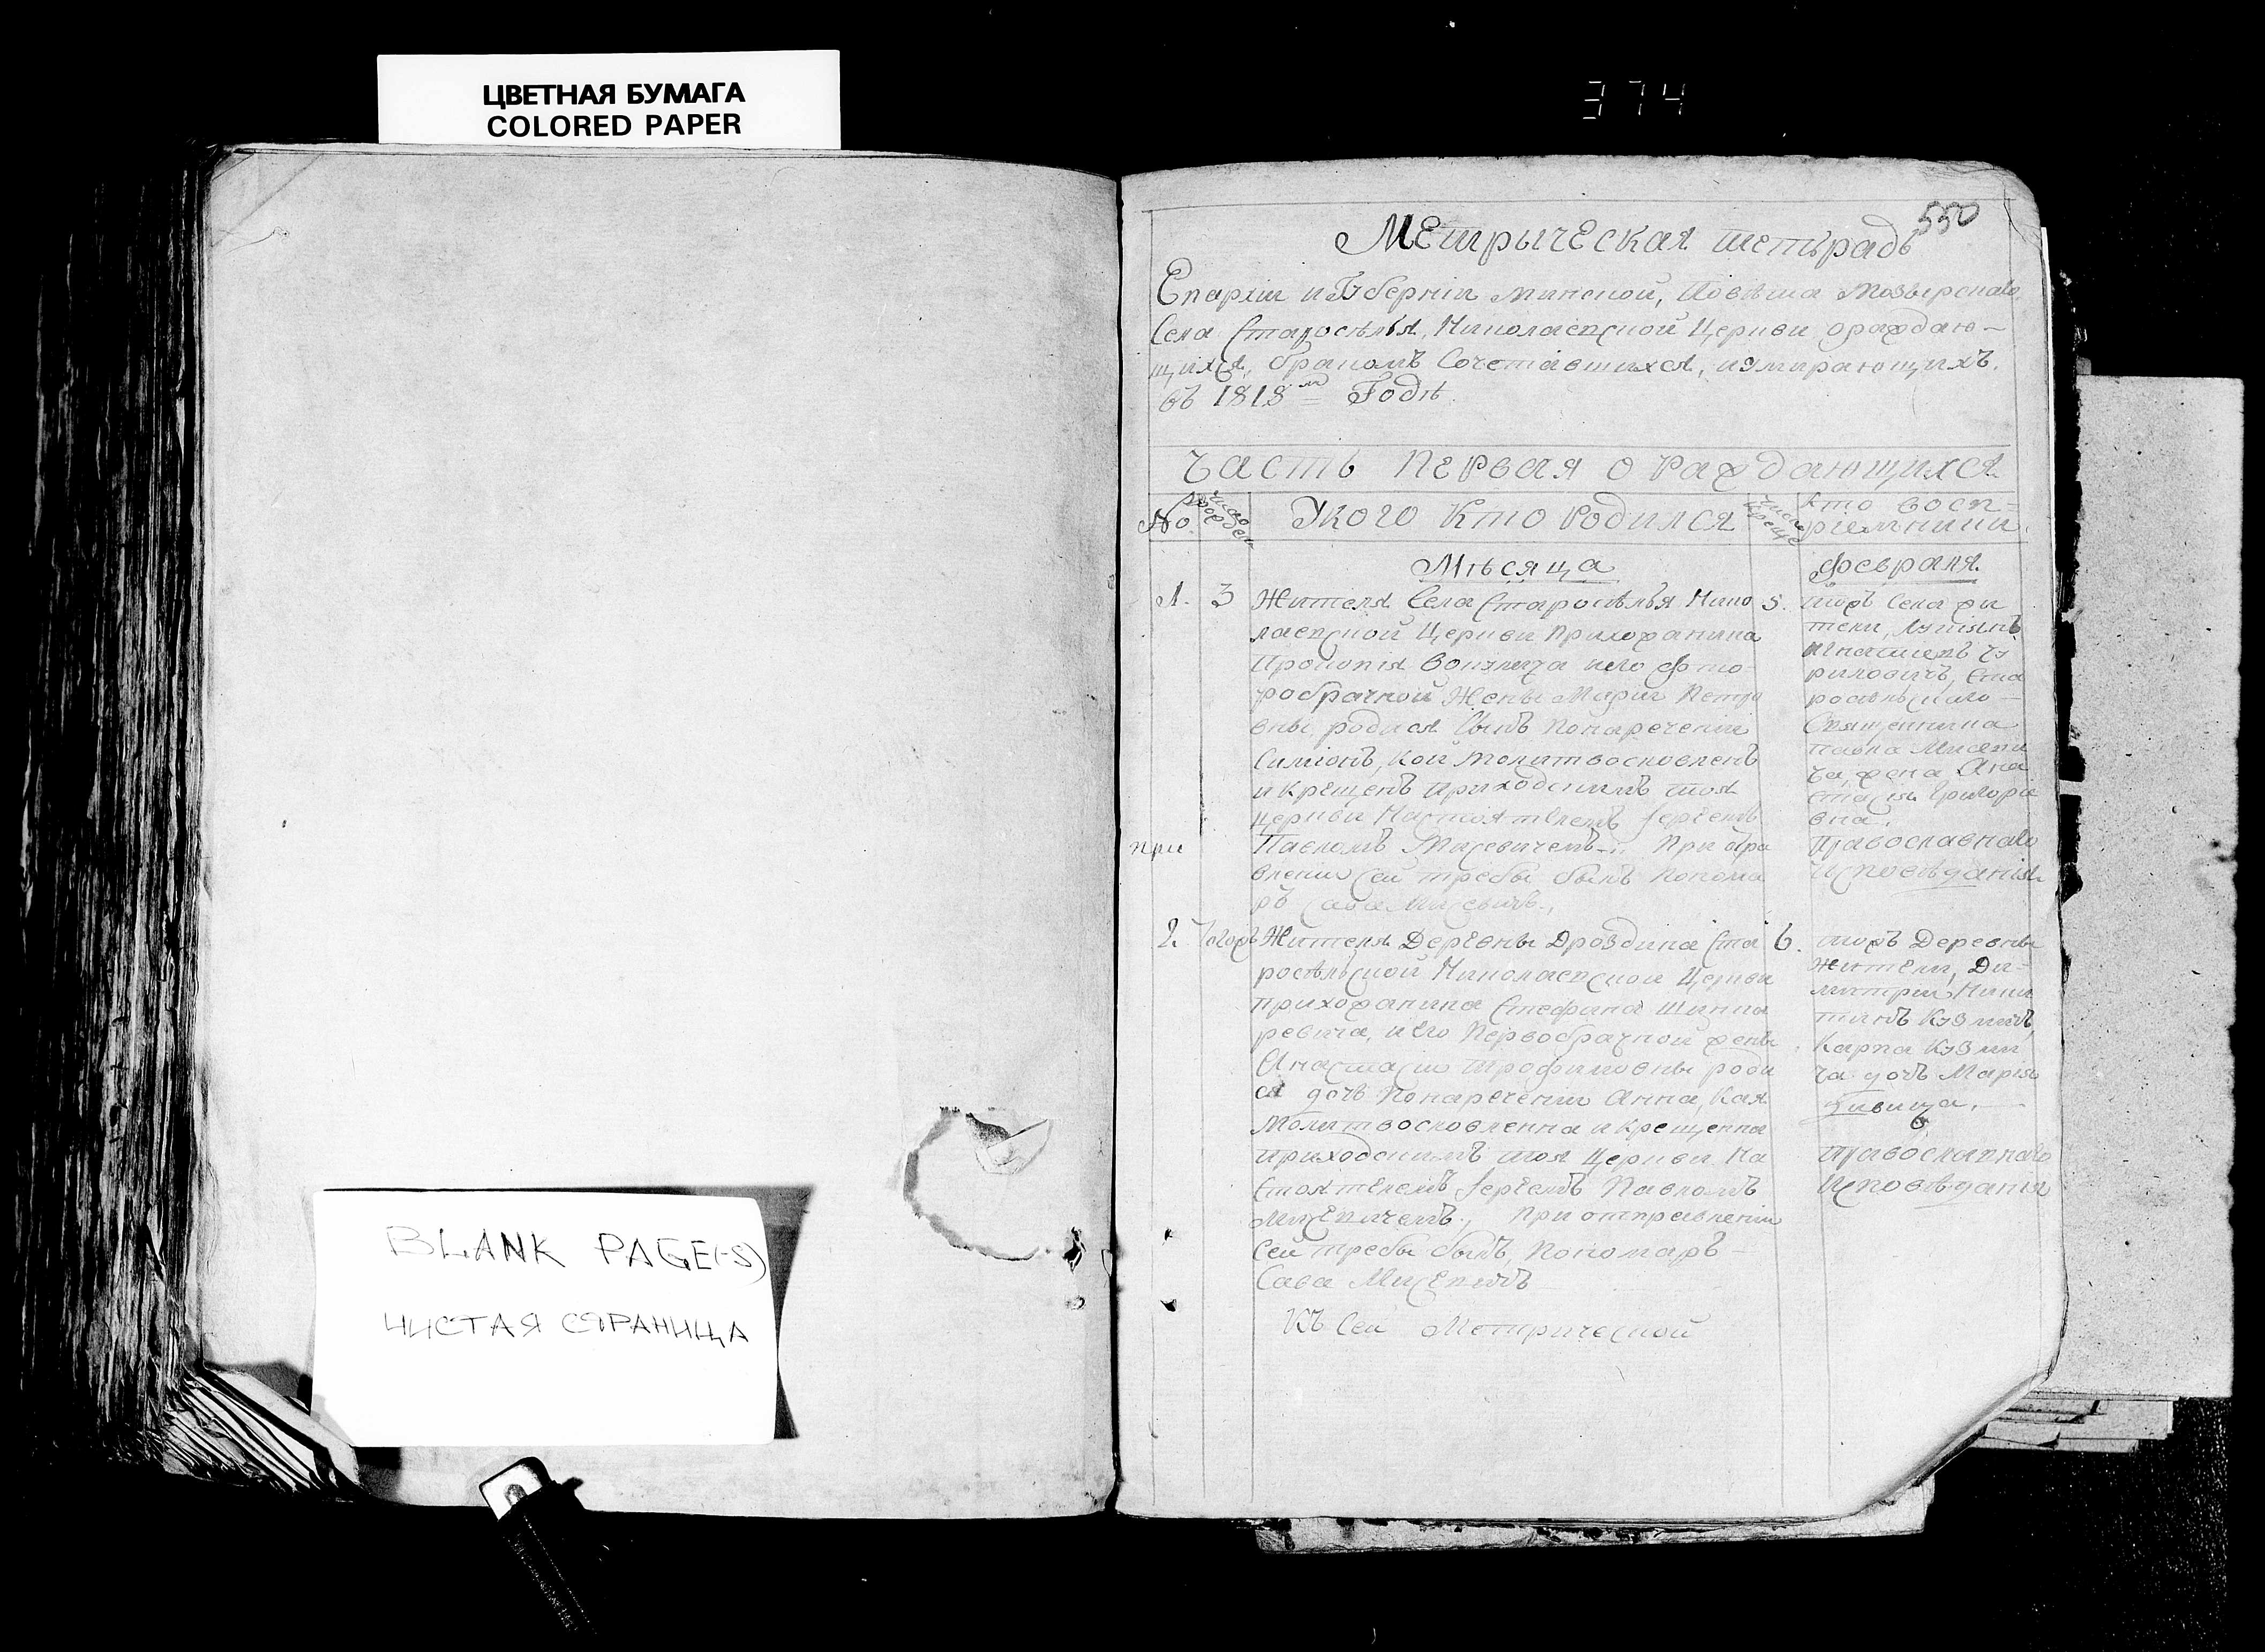 ЦВЕТНАЯ БУМАГА
COLORED PAPER
374
BLANK PAGE(S)
ЧИСТАЯ СТРАНИЦА
550
Метрыческая тетьрадь
Епархіи и Губерніи Минской, Повѣта Мозырскаго
Села Старосѣлья, Николаевской Церкви ораждаю-
щихся, бракомъ Сочетавшихся, иумирающихъ.
въ 1818м Годѣ
Часть Первая о раждающихся
№
Укого Кто Родился
Кто Восп-
ріемники
Мѣсяца
Февраля
1. 3
Жителя Села Старосѣлья Нико
лаевской Церкви Прихожанина
Прокопія его
робрачной Жены Маріи Петро
вны, родися Сынъ Понаречении
Симіонъ, Кой Молитвословленъ
и Крещенъ Приходскимъ тоя
Церкви Настоятелемъ Іереемъ
при
Павломъ Мисевичемъ При отпра
влении Сей требы былъ Понома
рь Сава Мисевичъ.,
5.
тогожъ Села жи
тели,
Игнатіевъ
риловичъ, Ста
росѣльскаго
Священника
Павла Мисеви
ча, жена, Ана
стасія Григоріе
вна.
Православнаго
Исповѣданія
2.
Жителя Деревны Дроздина Ста
росѣльской Николаевской Церкви
прихожанина Стефана Шинка
ревича, и Его Первобрачной жены
Анастасіи Трофимовны роди
ся дочь Понаречении Анна, Кая
Молитвословленна и Крещенна
Приходскимъ тоя Церкви На
стоятелемъ Іереемъ Павломъ
Мисевичемъ., При отправлении
Сей требы былъ, Пономарь
Сава Мисевичъ
6.
тожъ Деревны
Жители, Ди-
митрий Ники
тинъ Кузмичъ,
Карпа Кузми
ча дочь Марія
дивица.
Православнаго
Исповѣданія
Къ Сей Метрической